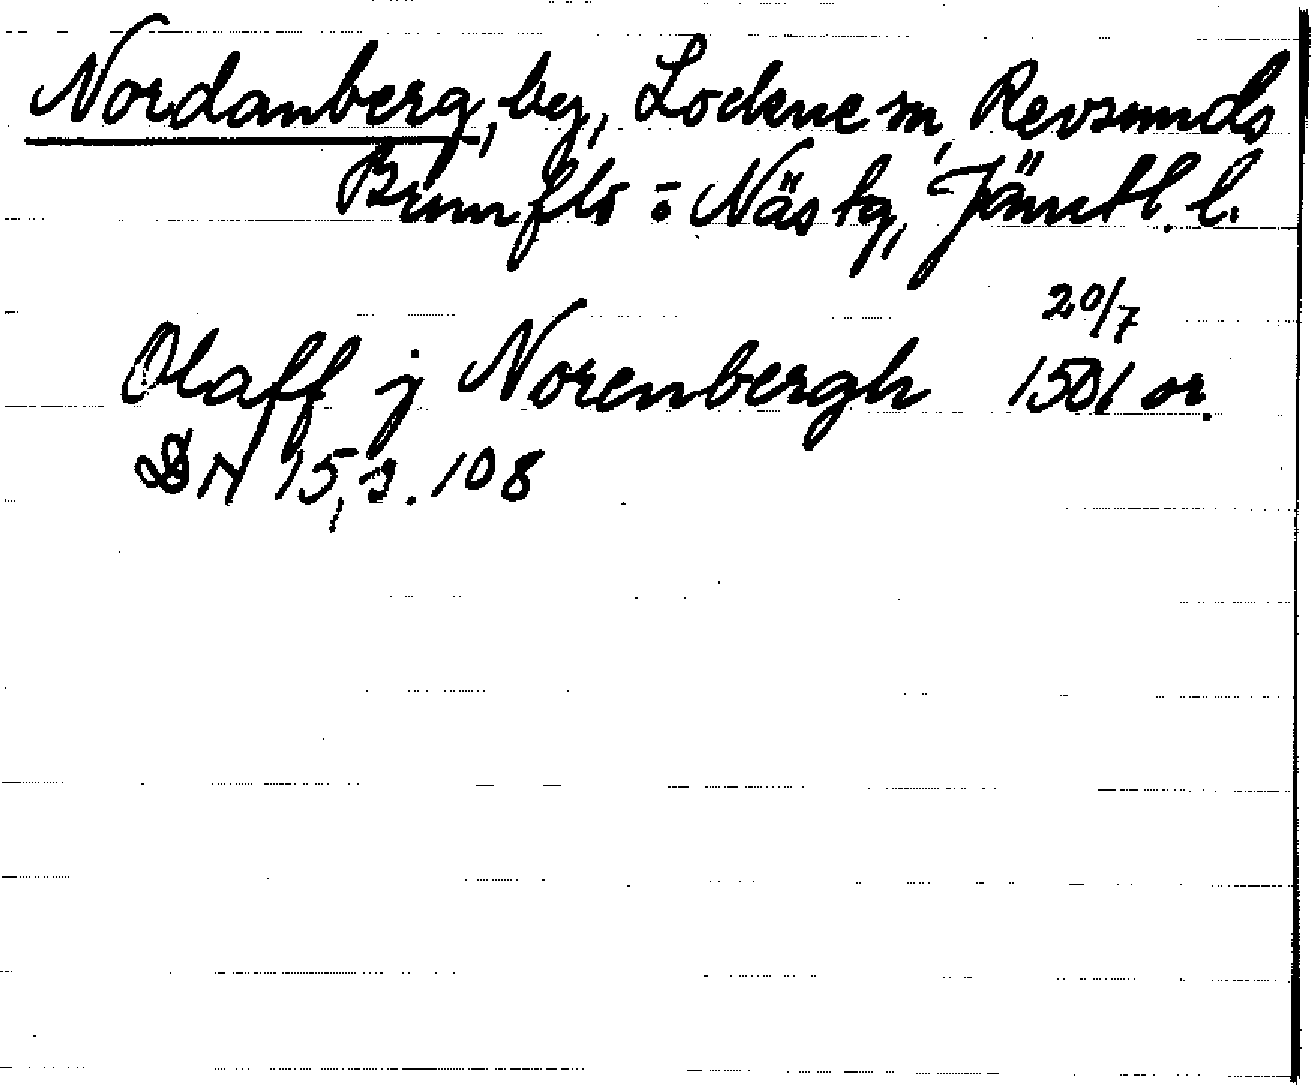 Nordanberg, by, Lockne sn, Revsunds
Brunflo o Näs tg, Jämtl. l.
20/7
Olaff j Norenbergh 1501 or.
DN 15, s. 108